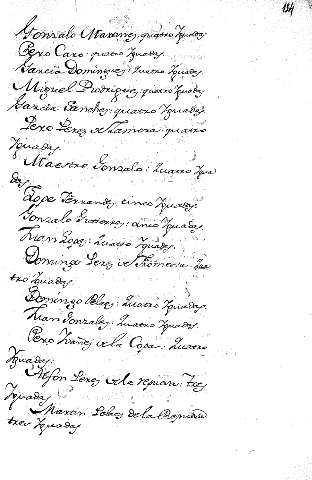 184
Gonzalo Martinez: quatro Iguadas
Pero Caro: quatro Iguadas
Garcia Dominguez: Quatro Iguadas
Miguel Rodriguez: quatro Iguadas
Garcia Sanchez: quatro Iguadas
Pero Perez de Zamora: quatro
Iguadas
Maestro Gonzalo: Quatro Igua
das
Lope Ferrandez, cinco Iguadas
Gonzalo Gutierrez: cinco Iguadas
Iuan Lopez: Quatro Iguadas
Domingo Perez de Qua
tro Iguadas
Domingo Quatro Iguadas
Iuan Gonzalez: Quatro Iguadas
Pero Ivañez de la Quatro
Iguadas:
Alfon Perez de la tres
Iguadas
Martin de la
tres Iguadas